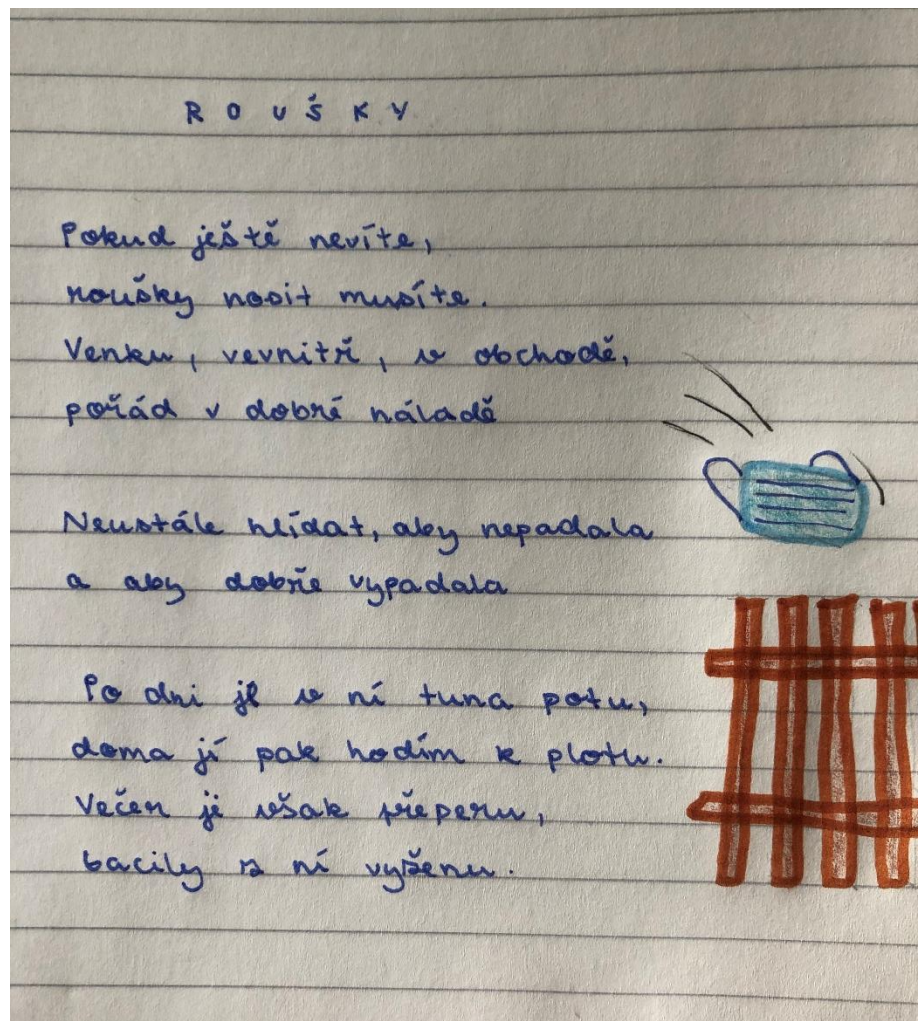 ROUŠKY
Pokud ještě nevíte,
roušky nosit musíte.
Venku, vevnitř, v obchodě,
pořád v dobré náladě
Neustále hlídat, aby nepadala
a aby dobře vypadala
Po dni je v ní tuna potu,
doma jí pak hodím k plotu.
Večer ji však přeperu,
bacily z ní vyženu.